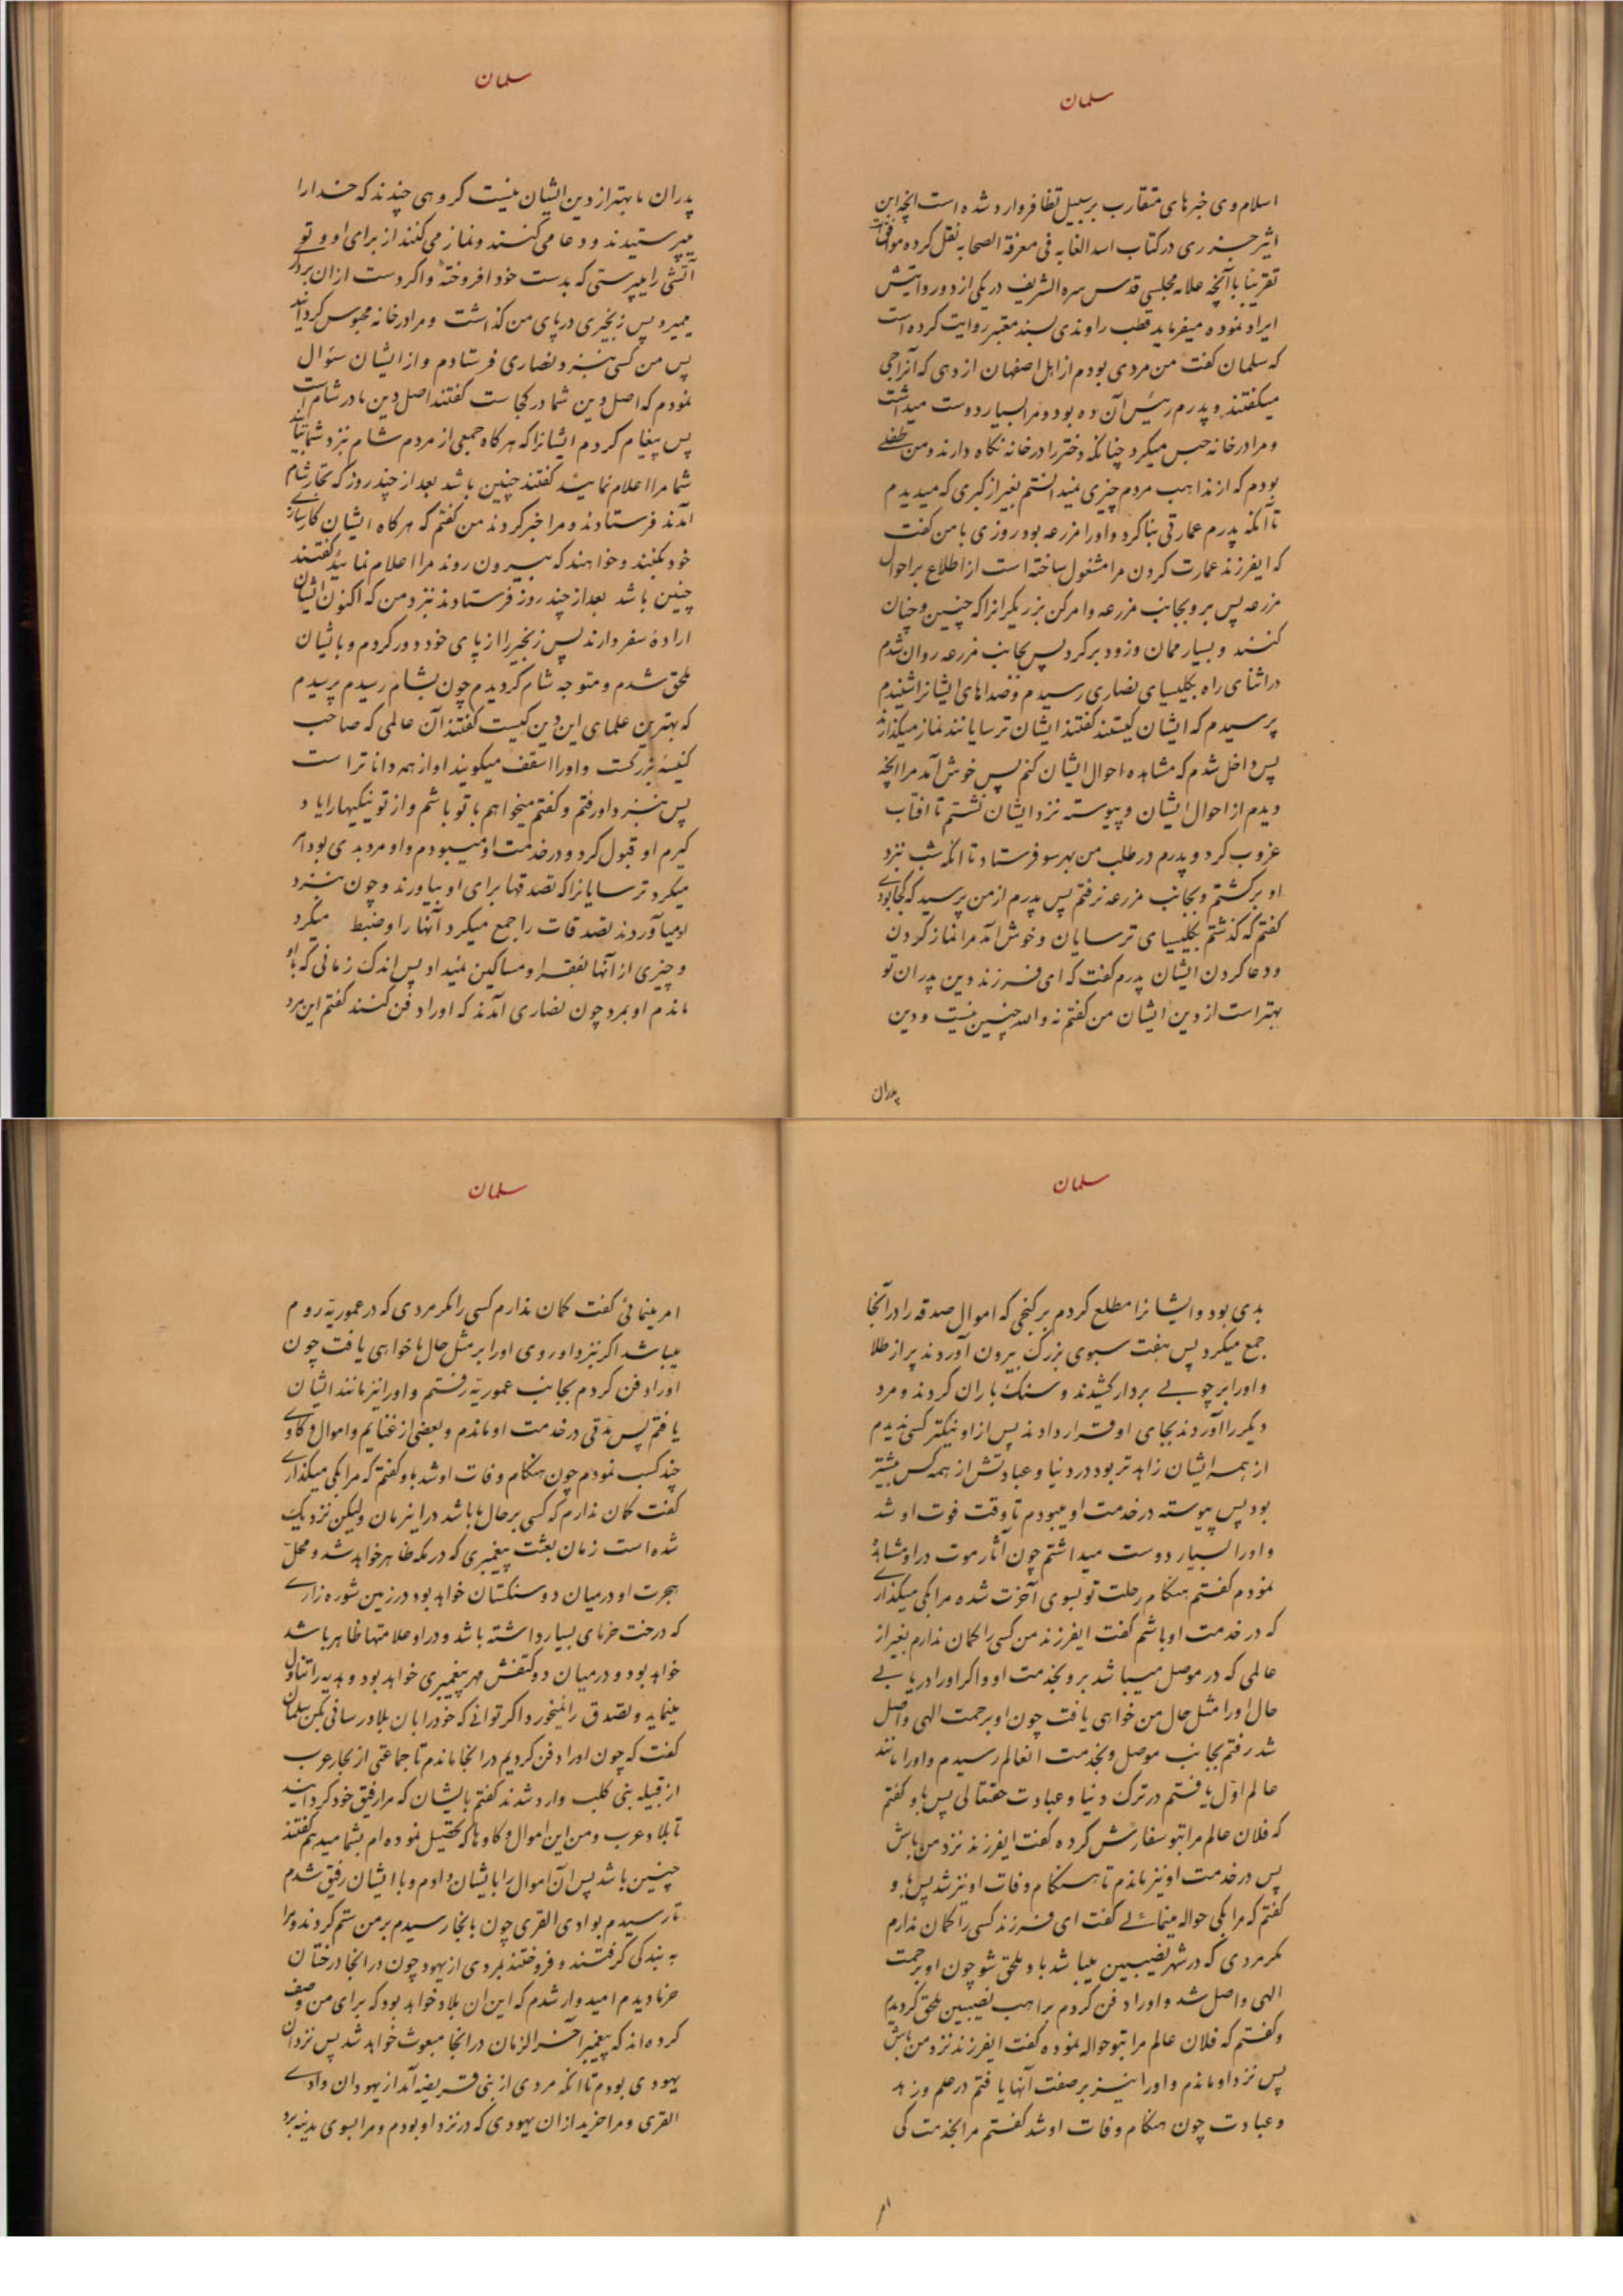 سلمان
اسلام وی خبرهای متقارب بر سبیل تظافر وارد شده است انچه ابن
اثیر جزری در کتاب اسد الغابه فی معرفة الصحابه نقل کرده موافقا
تقریبا با آنچه علامه مجلسی قدس سره الشریف در یکی از دو روایتش
ایراد نموده میفرماید قطب راوندی بسند معتبر روایت کرده است
که سلمان گفت من مردی بودم از اهل اصفهان از دهی که آنرا جی
میگفتند و پدرم رئیس آن ده بود و مرا بسیار دوست میداشت
و مرا در خانه حبس میکرد چنانکه دختر را در خانه نگاه دارند و من طفلی
بودم که از مذاهب مردم چیزی نمیدانستم بغیر از گبری که میدیدم
تا آنکه پدرم عمارتی بنا کرد و او را مزرعه بود روزی با من گفت
که ایفرزند عمارت کردن مرا مشغول ساخته است از اطلاع بر احوال
مزرعه پس برو بجانب مزرعه و امر کن بزریگرانرا که چنین و چنان
کنند و بسیار ممان و زود برگرد پس بجانب مزرعه روان شدم
در اثنای راه بکلیسای نصاری رسیدم و صداهای ایشانرا شنیدم
پرسیدم که ایشان کیستند گفتند ایشان ترسایانند نماز میگذارند
پس داخل شدم که مشاهده احوال ایشان کنم پس خوش آمد مرا انچه
دیدم از احوال ایشان و پیوسته نزد ایشان نشستم تا افتاب
غروب کرد و پدرم در طلب من بهر سو فرستاد تا انکه شب نزد
او برگشتم و بجانب مزرعه نرفتم پس پدرم از من پرسید که کجا بودی
گفتم که گذشتم بکلیسای ترسایان و خوش آمد مرا نماز کردن
و دعا کردن ایشان پدرم گفت که ای فرزند دین پدران تو
بهتر است از دین ایشان من گفتم نه والله چنین نیست و دین
پدران
سلمان
پدران ما بهتر از دین ایشان نیست گروهی چندند که خدا را
میپرستیدند و دعا می کنند و نماز می کنند از برای او و تو
آتشی را میپرستی که بدست خود افروخته و اگر دست از ان برداری
میمیرد پس زنجیری در پای من گذاشت و مرا در خانه محبوس گردانید
پس من کسی بنزد نصاری فرستادم و از ایشان سئوال
نمودم که اصل دین شما در کجاست گفتند اصل دین ما در شام است
پس پیغام کردم ایشانرا که هرگاه جمعی از مردم شام نزد شما بیایند
شما مرا اعلام نمائید گفتند چنین باشد بعد از چند روز که تجار شام
آمدند فرستادند و مرا خبر کردند من گفتم که هرگاه ایشان کارسازی
خود بکنند و خواهند که بیرون روند مرا اعلام نمائید گفتند
چنین باشد بعد از چند روز فرستادند نزد من که اکنون ایشان
ارادهٔ سفر دارند پس زنجیر را از پای خود دور کردم و بایشان
ملحق شدم و متوجه شام گردیدم چون بشام رسیدم پرسیدم
که بهترین علمای این دین کیست گفتند آن عالمی که صاحب
کنیسهٔ بزرگست و او را اسقف میگویند او از همه داناتر است
پس بنزد او رفتم و گفتم میخواهم با تو باشم و از تو نیکیها را یاد
گیرم او قبول کرد و در خدمت او میبودم و او مرد بدی بود امر
میکرد ترسایانرا که تصدقها برای او بیاورند و چون بنزد
او میآوردند تصدقات را جمع میکرد آنها را و ضبط میکرد
و چیزی از آنها بفقرا و مساکین نمیداد پس اندک زمانی که با او
ماندم او بمرد چون نصاری آمدند که او را دفن کنند گفتم این مرد
سلمان
بدی بود و ایشانرا مطلع کردم بر گنجی که اموال صدقه را در آنجا
جمع میکرد پس هفت سبوی بزرگ بیرون آوردند پر از طلا
و او را بر چوبی بردار کشیدند و سنگ باران کردند و مرد
دیگر را آوردند بجای او قرار دادند پس از او نیکتر کسی ندیدم
از همه ایشان زاهدتر بود در دنیا و عبادتش از همه کس بیشتر
بود پس پیوسته در خدمت او میبودم تا وقت فوت او شد
و او را بسیار دوست میداشتم چون آثار موت در او مشاهده
نمودم گفتم هنگام رحلت تو بسوی آخرت شده مرا بکی میگذاری
که در خدمت او باشم گفت ایفرزند من کسی را گمان ندارم بغیر از
عالمی که در موصل میباشد برو بخدمت او و اگر او را دریابی
حال او را مثل حال من خواهی یافت چون او برحمت الهی واصل
شد رفتم بجانب موصل و بخدمت انعالم رسیدم و او را مانند
عالم اول یافتم در ترک دنیا و عبادت حقتعالی پس باو گفتم
که فلان عالم مرا بتو سفارش کرده گفت ایفرزند نزد من باش
پس در خدمت او نیز ماندم تا هنگام وفات او نیز شد پس باو
گفتم که مرا بکی حواله مینمائی گفت ای فرزند کسی را گمان ندارم
مگر مردی که در شهر نصیبین میباشد باو ملحق شو چون او برحمت
الهی واصل شد و او را دفن کردم براهب نصیبین ملحق گردیدم
و گفتم که فلان عالم مرا بتو حواله نموده گفت ایفرزند نزد من باش
پس نزد او ماندم و او را نیز بر صفت آنها یافتم در علم و زهد
و عبادت چون هنگام وفات او شد گفتم مرا بخدمت کی
امر
سلمان
امر مینمائی گفت گمان ندارم کسی را مگر مردی که در عموریهٔ روم
میباشد اگر نزد او روی او را بر مثل حال ما خواهی یافت چون
او را دفن کردم بجانب عموریه رفتم و او را نیز مانند ایشان
یافتم پس مدتی در خدمت او ماندم و بعضی از غنایم و اموال و گاوی
چند کسب نمودم چون هنگام وفات او شد باو گفتم که مرا بکی میگذاری
گفت گمان ندارم که کسی بر حال ما باشد در اینزمان ولیکن نزدیک
شده است زمان بعثت پیغمبری که در مکه ظاهر خواهد شد و محل
هجرت او در میان دو سنگستان خواهد بود در زمین شوره زاری
که درخت خرمای بسیار داشته باشد و در او علامتها ظاهر باشد
خواهد بود و در میان دو کتفش مهر پیغمبری خواهد بود و هدیه را تناول
مینماید و تصدق را نمیخورد اگر توانی که خود را بان بلاد رسانی بکن سلمان
گفت که چون او را دفن کردیم در انجا ماندم تا جماعتی از تجار عرب
از قبیله بنی کلب وارد شدند گفتم بایشان که مرا رفیق خود گردانید
تا بلاد عرب و من این اموال و گاوها که تحصیل نموده ام بشما میدهم گفتند
چنین باشد پس آن اموال را بایشان دادم و با ایشان رفیق شدم
تا رسیدم بوادی القری چون بانجا رسیدم بر من ستم کردند و مرا
به بندگی گرفتند و فروختند بمردی از یهود چون در انجا درختان
خرما دیدم امیدوار شدم که این ان بلاد خواهد بود که برای من وصف
کرده اند که پیغمبر آخر الزمان در انجا مبعوث خواهد شد پس نزد ان
یهودی بودم تا انکه مردی از بنی قریضه آمد از یهودان وادی
القری و مرا خرید از ان یهودی که در نزد او بودم و مرا بسوی مدینه برد